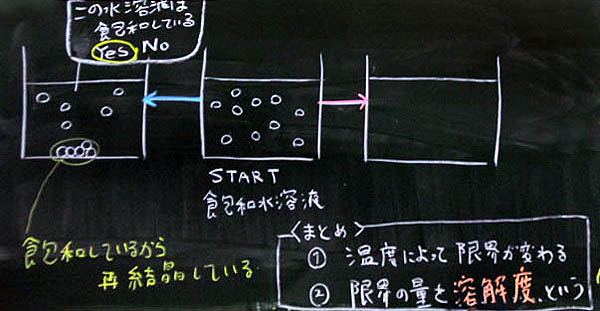 この水溶液は
飽和している
Yes No
START
飽和水溶液
飽和しているから
再結晶している
〈まとめ〉
① 温度によって限界が変わる
② 限界の量を溶解度、という